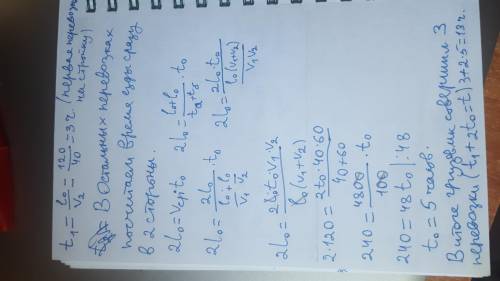 t₁ = l₀/v₂ = 120/40 = 3 ч. (первая перевозка
на стройку)
В остальных перевозках
посчитаем время езды сразу
в 2 стороны.
2l₀ = Vср · t₀    2l₀ = (l₀+l₀)/(tа+tб) · t₀
2l₀ = 2l₀/(l₀/v₁ + l₀/v₂) · t₀    2l₀ = 2l₀·t₀/(l₀(v₁+v₂)/(v₁v₂))
2l₀ = 2l₀t₀v₁v₂/(l₀(v₁+v₂))
2·120 = 2t₀·40·60/(40+60)
240 = 4800/100 · t₀
240 = 48t₀ |:48
t₀ = 5 часов.
В итоге грузовик совершил 3
перевозки (t₁ + 2t₀ = t) 3+2·5 = 13 ч.